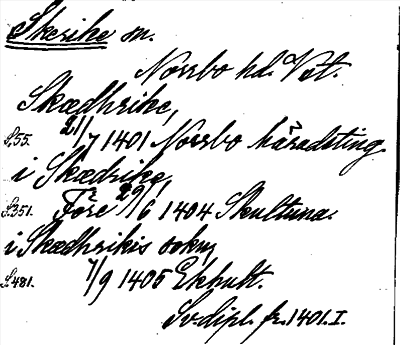 Skerike sn.
Norrbo hd. Vst.
Skædhrike,
S.55. 21/7 1401 Norrbo häradsting.
i Skædrike,
S.351. Före 29/6 1404 Skultuna.
i Skædhrikis sokn,
S.481. 7/9 1405 Ekhult.
Sv. dipl. fr. 1401. I.